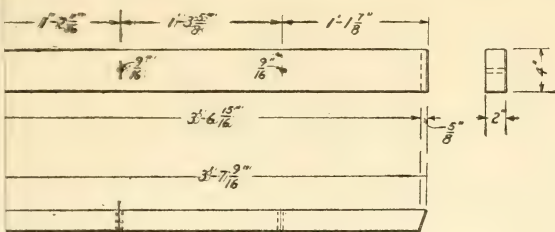 1'-2 5/16" 1'-3 5/8" 1'-1 7/8"
9/16" 9/16" 4"
3'-6 15/16" 5/8" 2"
3'-7 9/16"